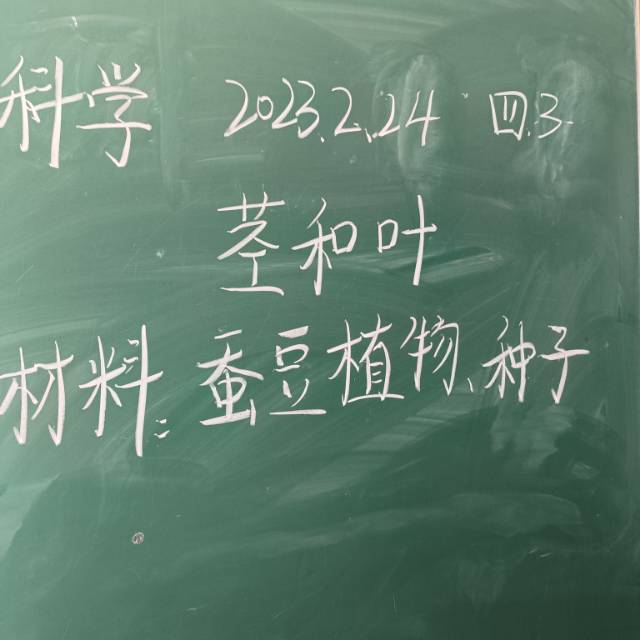 科学 2023.2.24 四.3
茎和叶
材料:蚕豆植物、种子